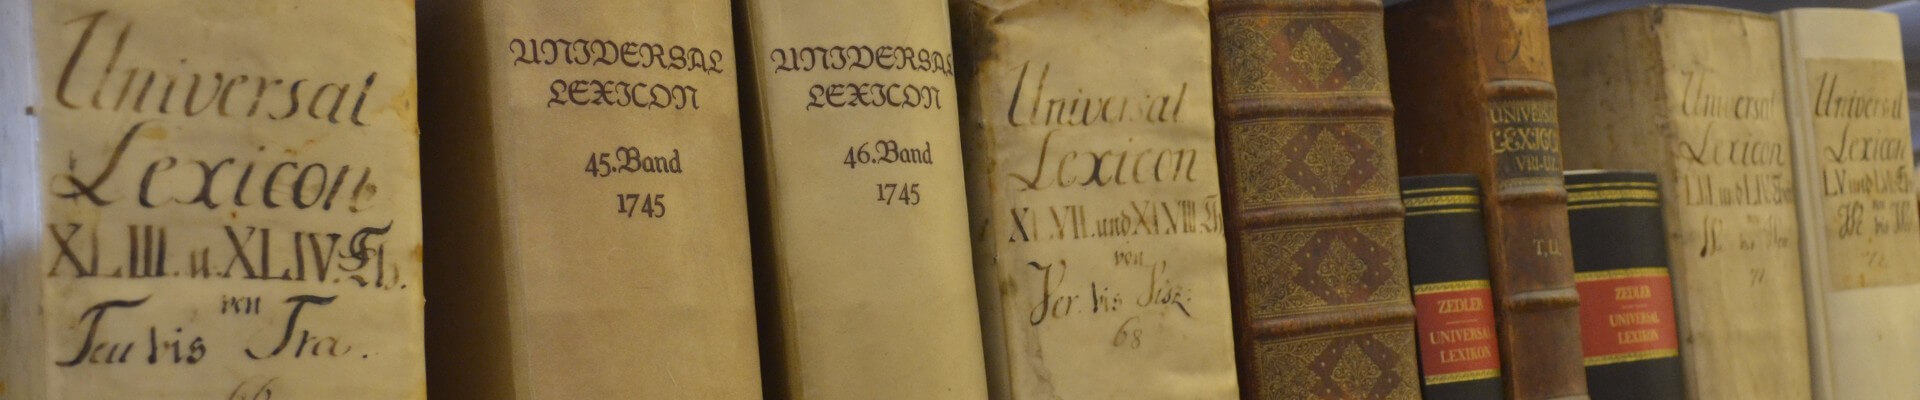 Universal
Lexicon
XLIII. u. XLIV. Th.
von
Teu bis Tra.
66
UNIVERSAL
LEXICON
45. Band
1745
UNIVERSAL
LEXICON
46. Band
1745
Universal
Lexicon
XLVII. und XLVIII. Th
von
Ver. bis Visz:
68
UNIVERSAL
LEXICO
T,U.
ZEDLER
UNIVERSAL
LEXIKON
ZEDLER
UNIVERSAL
LEXIKON
Universal
Lexicon
LIII und LIV
W. bis
Universal
Lexicon
LV und LVI
bis